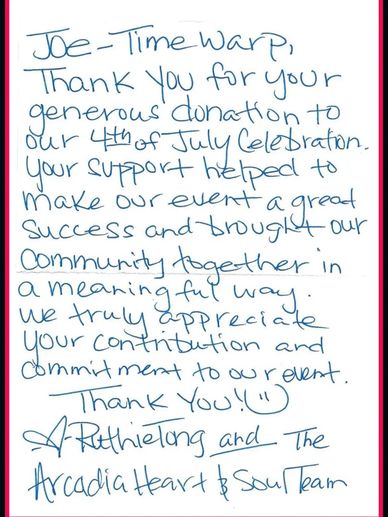 Joe - Time Warp,
Thank you for your
generous donation to
our 4th of July Celebration.
Your support helped to
make our event a great
success and brought our
Community together in
a meaningful way.
We truly appreciate
your contribution and
commitment to our event.
Thank You! ☺
Ruthie Tong and The
Arcadia Heart & Soul Team